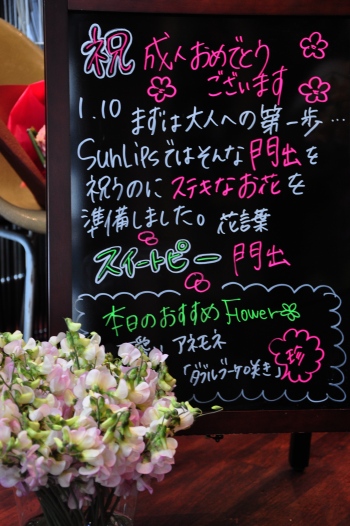 祝 成人おめでとう
ございます
1.10 まずは大人への第一歩…
SunLipsではそんな門出を
祝うのにステキなお花を
準備しました。花言葉
スイートピー 門出
本日のおすすめFlower
アネモネ
「ダブルブーケ咲き」